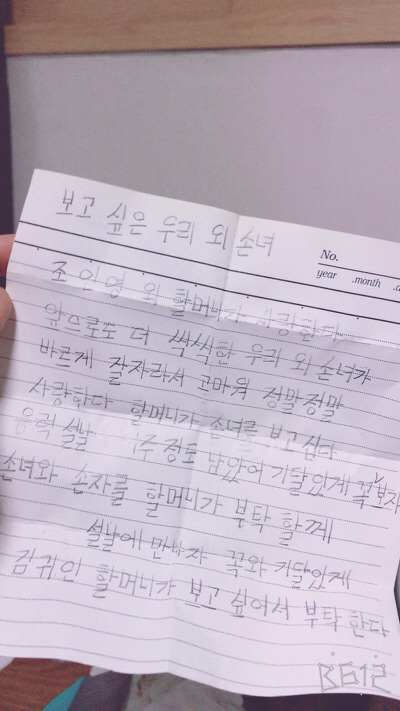 보고 싶은 우리 외 손녀
No.
year .month
조 인영 외 할머니가 사랑한다
앞으로도 더 씩씩한 우리 외 손녀가
바르게 잘자라서 고마워 정말정말
사랑한다 할머니가 손녀를 보고십다
음력 설날 1주 정도 남았어 기달있게 꼭보자
손녀와 손자를 할머니가 부탁 할께
설날에 만나자 꼭와 기달있게
김귀인 할머니가 보고 싶어서 부탁 한다
B612